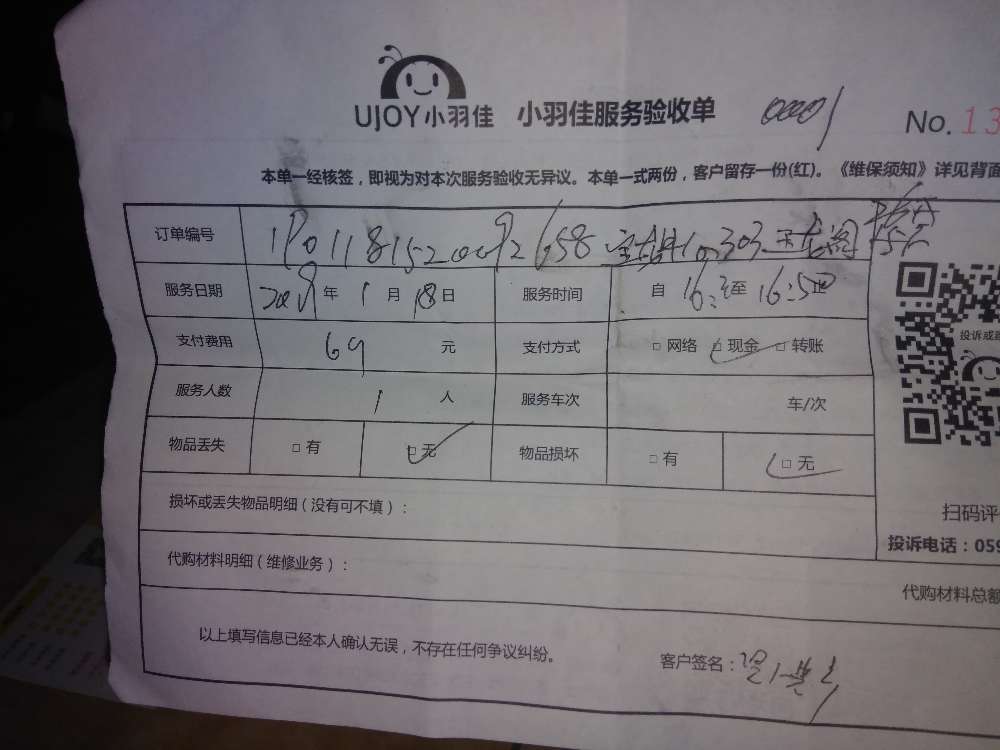 UJOY小羽佳 小羽佳服务验收单 0001 No. 13
本单一经核签，即视为对本次服务验收无异议。本单一式两份，客户留存一份(红)。《维保须知》详见背面
订单编号
服务日期 年 1 月 18 日 服务时间 自 至
支付费用 69 元 支付方式 □ 网络 □ 现金 □ 转账
投诉或
服务人数 1 人 服务车次 车/次
物品丢失 □ 有 □ 无 物品损坏 □ 有 □ 无
损坏或丢失物品明细（没有可不填）：
扫码评
投诉电话：059
代购材料明细（维修业务）：
代购材料总额
以上填写信息已经本人确认无误，不存在任何争议纠纷。
客户签名：